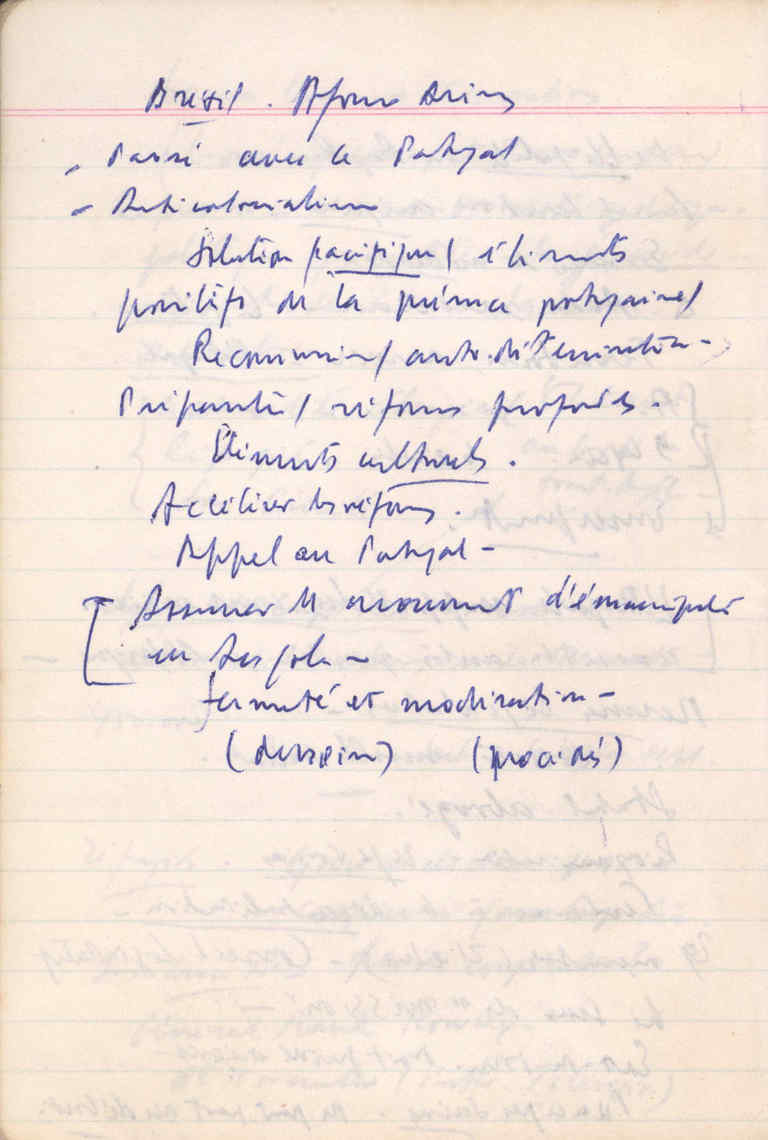 Brésil. Afonso Arinos
- Passé avec le Portugal
- Anticolonialisme
Solution pacifique/ éléments
positifs de la présence portugaise/
Reconnaiss/ autodétermination -
Préparation/ réformes profondes.
Éléments culturels.
Accélérer les réformes.
Appel au Portugal -
Assumer le mouvement d'émancipation
en Angola -
fermeté et modération -
(dessein) (procédés)